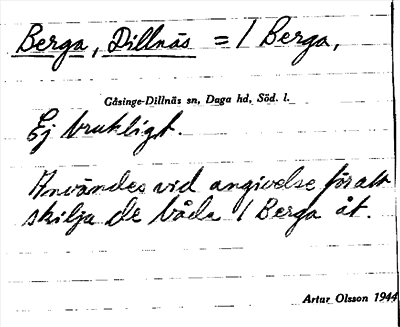 Berga, Dillnäs = 1 Berga,
Gåsinge-Dillnäs sn, Daga hd, Söd. l.
Ej brukligt.
Användes vid angivelse för att
skilja de båda 1 Berga åt.
Artur Olsson 1944